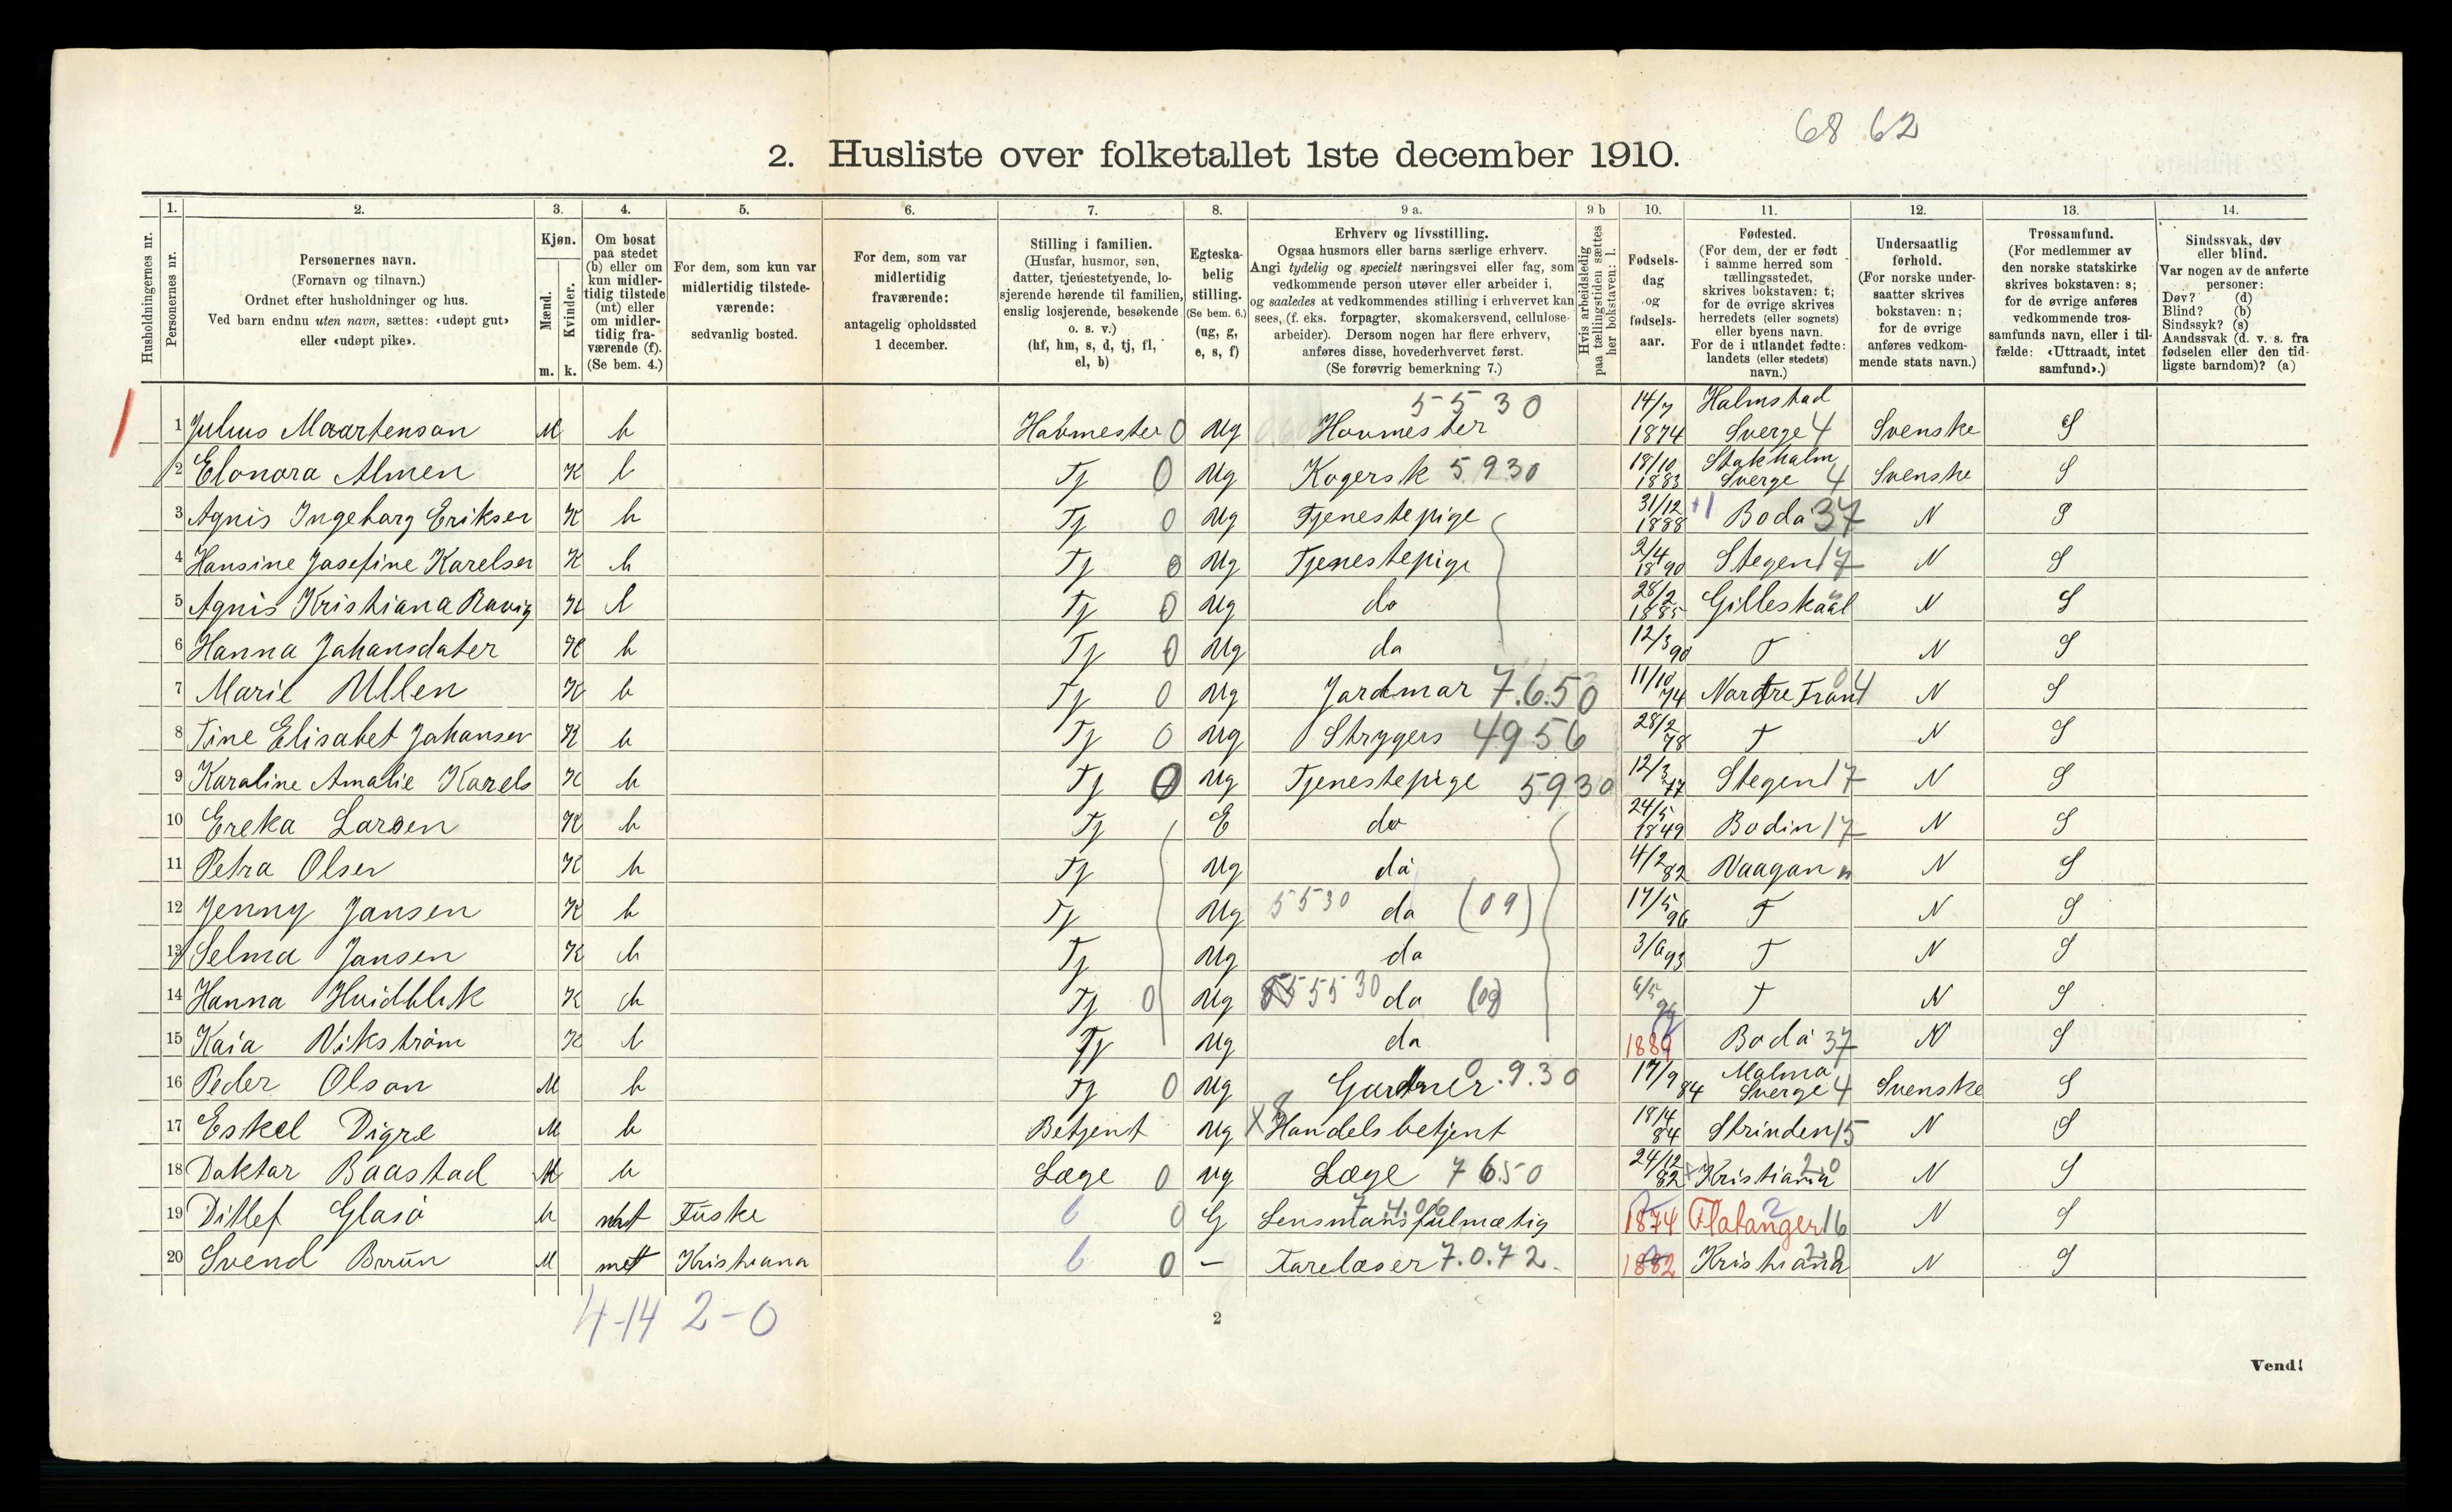 68 62
2. Husliste over folketallet 1ste december 1910.
Husholdningernes nr.
1. Personernes nr.
2. Personernes navn.
(Fornavn og tilnavn.)
Ordnet efter husholdninger og hus.
Ved barn endnu uten navn, sættes: «udøpt gut»
eller «udøpt pike».
3. Kjøn.
Mænd. m.
Kvinder. k.
4. Om bosat
paa stedet
(b) eller om
kun midler-
tidig tilstede
(mt) eller
om midler-
tidig fra-
værende (f).
(Se bem. 4.)
5. For dem, som kun var
midlertidig tilstede-
værende:
sedvanlig bosted.
6. For dem, som var
midlertidig
fraværende:
antagelig opholdssted
1 december.
7. Stilling i familien.
(Husfar, husmor, søn,
datter, tjenestetyende, lo-
sjerende hørende til familien,
enslig losjerende, besøkende
o. s. v.)
(hf, hm, s, d, tj, fl,
el, b)
8. Egteska-
belig
stilling.
(Se bem. 6.)
(ug, g,
e, s, f)
9 a. Erhverv og livsstilling.
Ogsaa husmors eller barns særlige erhverv.
Angi tydelig og specielt næringsvei eller fag, som
vedkommende person utøver eller arbeider i,
og saaledes at vedkommendes stilling i erhvervet kan
sees, (f. eks. forpagter, skomakersvend, cellulose-
arbeider). Dersom nogen har flere erhverv,
anføres disse, hovederhvervet først.
(Se forøvrig bemerkning 7.)
9 b Hvis arbeidsledig
paa tællingstiden sættes
her bokstaven: l.
10. Fødsels-
dag
og
fødsels-
aar.
11. Fødested.
(For dem, der er født
i samme herred som
tællingsstedet,
skrives bokstaven: t;
for de øvrige skrives
herredets (eller sognets)
eller byens navn.
For de i utlandet fødte:
landets (eller stedets)
navn.)
12. Undersaatlig
forhold.
(For norske under-
saatter skrives
bokstaven: n;
for de øvrige
anføres vedkom-
mende stats navn.)
13. Trossamfund.
(For medlemmer av
den norske statskirke
skrives bokstaven: s;
for de øvrige anføres
vedkommende tros-
samfunds navn, eller i til-
fælde: «Uttraadt, intet
samfund».)
14. Sindssvak, døv
eller blind.
Var nogen av de anførte
personer:
Døv? (d)
Blind? (b)
Sindssyk? (s)
Aandssvak (d. v. s. fra
fødselen eller den tid-
ligste barndom)? (a)
1 Julius Maartenson M b Hovmester 0 Ug Hovmester 5530 14/7 1874 Halmstad Sverge 4 Svenske S
2 Elonora Almen K b Tj 0 Ug Kogersk 5930 18/10 1883 Stokholm Sverge 4 Svenske S
3 Agnis Ingeborg Eriksen K b Tj 0 Ug Tjenestepige 31/12 1888 Bodø 37 N S
4 Hansine Josefine Karelsen K b Tj 0 Ug Tjenestepige 2/4 1890 Stegen 17 N S
5 Agnis Kristiana K b Tj 0 Ug do 28/2 1885 Gilleskaal N S
6 Hanna Johansdater K b Tj 0 Ug do 12/3 90 T N S
7 Marie Ullen K b Tj 0 Ug Jordmor 7.6.50 11/10 74 N S
8 Tine Elisabet Johansen K b Tj 0 Ug Strygers 4956 28/2 78 T N S
9 Karoline Amalie Karels K b Tj 0 Ug Tjenestepige 5930 12/3 77 Stegen 17 N S
10 Ereka Larsen K b Tj E do 24/5 1849 Bodin 17 N S
11 Petra Olsen K b Tj Ug do 4/2 82 Vaagan N S
12 Jenny Jansen K b Tj Ug 5530 do (09) 17/5 96 T N S
13 Selma Jansen K b Tj Ug do 93 T N S
14 Hanna K b Tj 0 Ug 5530 do (09) 6/5 T N S
15 Kaia Vikstrøm K b Tj Ug do Bodø 37 N S
16 Peder Olson M b Tj 0 Ug Gardner 0.9.30 17/9 84 Malmø Sverge 4 Svenske S
17 Eskel Digre M b Betjent Ug Handelsbetjent 18/4 84 Strinden 15 N S
18 Doktor Baastad M b Læge 0 Ug Læge 7650 24/12 82 Kristiania N S
19 Ditlef Glasø M mt Füske b 0 G Lensmansfulmætig 7406 1874 Flatanger 16 N S
20 Svend Brrün M mt Kristiana b 0 – Forelæser 7.0.72. 1882 Kristiania N S
4-14 2-0
2
Vend!